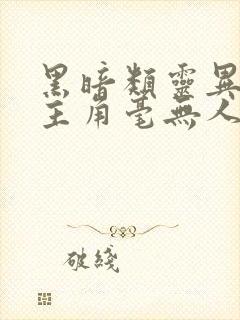 黑暗類靈異
主角毫無人
破綫